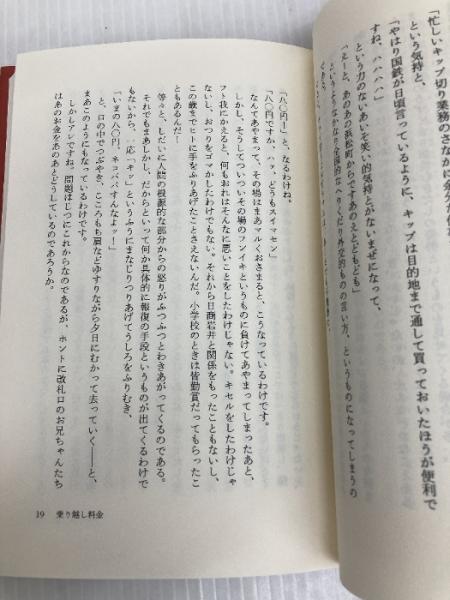 「忙しいキップ切り業務のさなかに余分な
という気持と、
「やはり国鉄が日頃言っているように、キップは目的地まで通して買っておいたほうが便利で
すね、ハハハハ」
という力のないあいそ笑い的気持とがないまぜになって、
「えーと、あのあの浜松町からですあのえとどもども」
というようなかなり全国的なへりくだり外交的もの言い方、というものになってしまうの
「八〇円！」と、なるわけね、
「八〇円ですか、ハッ、どうもスイマセン」
なんてあやまって、その場はまあマルくおさまると、こうなっているわけです。
しかし、そうしてついついその場のフンイキというものに負けてあやまってしまったあと、
フト我にかえると、何もおれはそんなに悪いことをしたわけじゃない。キセルをしたわけじゃ
ないし、おつりをゴマかしたわけでもない。それから日商岩井と関係をもったこともないし、
この歳までヒトに手をふりあげたことさえないんだ。小学校のときは皆勤賞だってもらったこ
ともあるんだ！
等々と、しだいに人間の根源的な部分からの怒りがふつふつとわきあがってくるのである。
それでもまあしかし、だからといって何か具体的に報復の手段というものが出てくるわけで
もないから、一応「キッ」というふうにまなじりつりあげてうしろをふりむき、
「いまの八〇円、ネコババすんなよッ！」
と、口の中でつぶやき、こころもち肩などゆすりながら夕日にむかって去っていく――と、
まあこのようにもなっているわけです。
しかしアレですね。問題はじつにこれからなのであるが、ホントに改札口のお兄ちゃんたち
はあのお金をあのあとどうしているのであろうか。
19 乗り越し料金